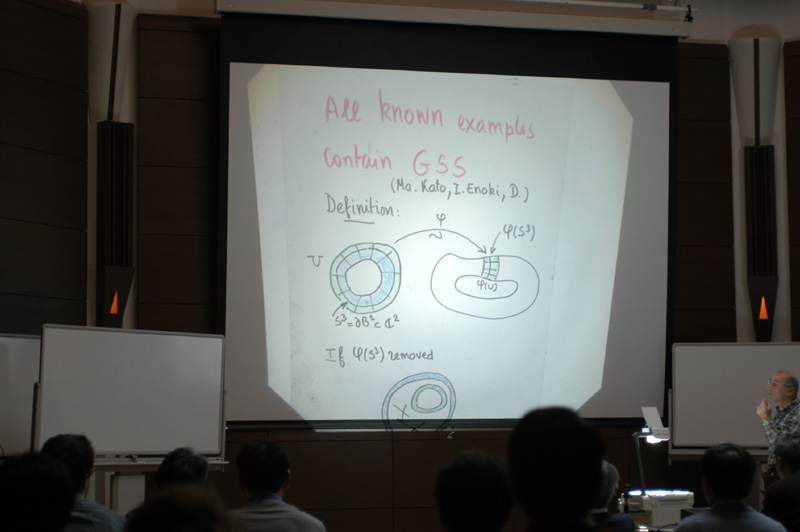 All known examples
contain GSS
(Ma. Kato, I. Enoki, D.)
Definition:
φ
~
φ(S³)
U
φ(U)
S³ = ∂B² ⊂ ℂ²
If φ(S³) removed
X